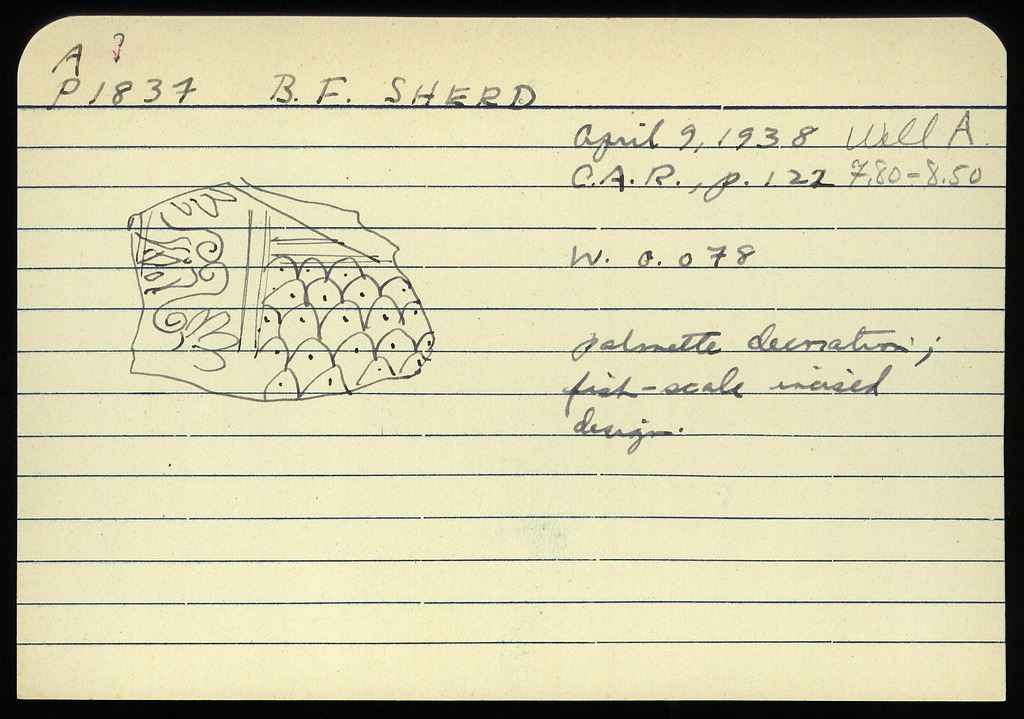 A ?
P 1837 B. F. SHERD
April 9, 1938 Well A
C.A.R., p. 122 7.80-8.50
W. 0.078
palmette decoration;
fish-scale incised
design.